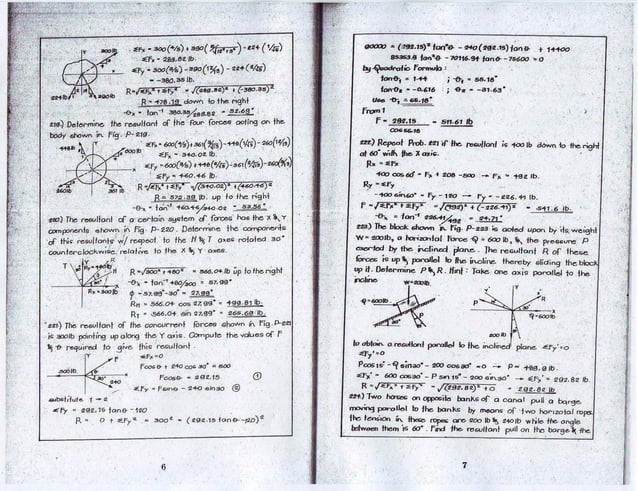 300 lb
Y
224 lb
390 lb
ΣFx = 300(4/5) + 390(5/√12²+5²) - 224(1/√2)
ΣFx = 282.82 lb.
ΣFy = 300(3/5) - 390(12/13) - 224(2/√5)
= -380.35 lb.
R = √ΣFx² + ΣFy² = √(282.82)² + (-380.35)²
R = 478.19 down to the right
θx = tan⁻¹ 380.35/282.82 = 52.69°
219.) Determine the resultant of the four forces acting on the
body shown in Fig. P-219.
448 lb
Y
600 lb
X
260 lb
361 lb
ΣFx = 340.02 lb.
ΣFy = 460.46 lb.
R = √ΣFx² + ΣFy² = √(340.02)² + (460.46)²
R = 572.39 lb. up to the right
220.) The resultant of a certain system of forces has the X & Y
components shown in Fig. P-220. Determine the components
of this resultants w/ respect to the N & T axes rotated 30°
counterclockwise relative to the X & Y axes.
T
Y
N
R
30°
Rx = 300 lb
R = √300² + 480² = 566.04 lb up to the right
θx = tan⁻¹ 480/300 = 57.99°
φ = 57.99° - 30° = 27.99°
Rn = 566.04 cos 27.99° = 499.81 lb.
Rt = 566.04 sin 27.99° = 265.68 lb.
221.) The resultant of the concurrent forces shown in Fig. P-221
is 300lb pointing up along the Y axis. Compute the values of F
& θ required to give this resultant.
Y
F
500 lb
θ
30°
240
ΣFx = 0
Fcosθ + 240 cos 30° = 500
Fcosθ = 292.15 ①
ΣFy = Fsinθ - 240 sin 30 ②
substitute 1 → 2
ΣFy = 292.15 tanθ - 120
R = 0 + ΣFy² = 300² = (292.15 tanθ - 120)²
6
90000 = (292.15)² tan²θ - 240(292.15) tanθ + 14400
85353.8 tan²θ - 70116.94 tanθ - 75600 = 0
by Quadratic Formula:
tanθ₁ = 1.44 ; θ₁ = 55.18°
tanθ₂ = -0.616 ; θ₂ = -31.63°
Use θ₁ = 55.18°
From 1
F = 292.15 = 511.61 lb
cos 55.18
222.) Repeat Prob. 221 if the resultant is 400 lb down to the right
at 60° with the X axis.
Rx = ΣFx
400 cos 60° = Fx + 208 - 500 → Fx = 492 lb.
Ry = ΣFy
-400 sin 60° = Fy - 120 → Fy = -226.41 lb.
F = √Fx² + Fy² = √(492)² + (-226.41)² = 541.6 lb.
θx = tan⁻¹ 226.41/492 = 24.71°
223.) The block shown in Fig. P-223 is acted upon by its weight
W = 200lb, a horizontal force Q = 600 lb, & the pressure P
exerted by the inclined plane. The resultant R of these
forces is up & parallel to the incline thereby sliding the block
up it. Determine P & R. Hint: Take one axis parallel to the
incline
W=200lb.
Q=600lb
P
15°
30°
P
R
Q=600lb
200 lb
to obtain a resultant parallel to the inclined plane ΣFy'=0
ΣFy' = 0
Pcos15° - Q sin30° - 200 cos30° = 0 → P = 489.9 lb.
ΣFx' = 600 cos30° - P sin 15° - 200 sin 30° → ΣFx' = 292.82 lb.
R = √ΣFx² + ΣFy² = √(292.82)² + 0 = 292.82 lb.
224.) Two horses on opposite banks of a canal pull a barge
moving parallel to the banks by means of two horizontal ropes.
the tension in these ropes are 200 lb & 240 lb while the angle
between them is 60°. Find the resultant pull on the barge & the
7